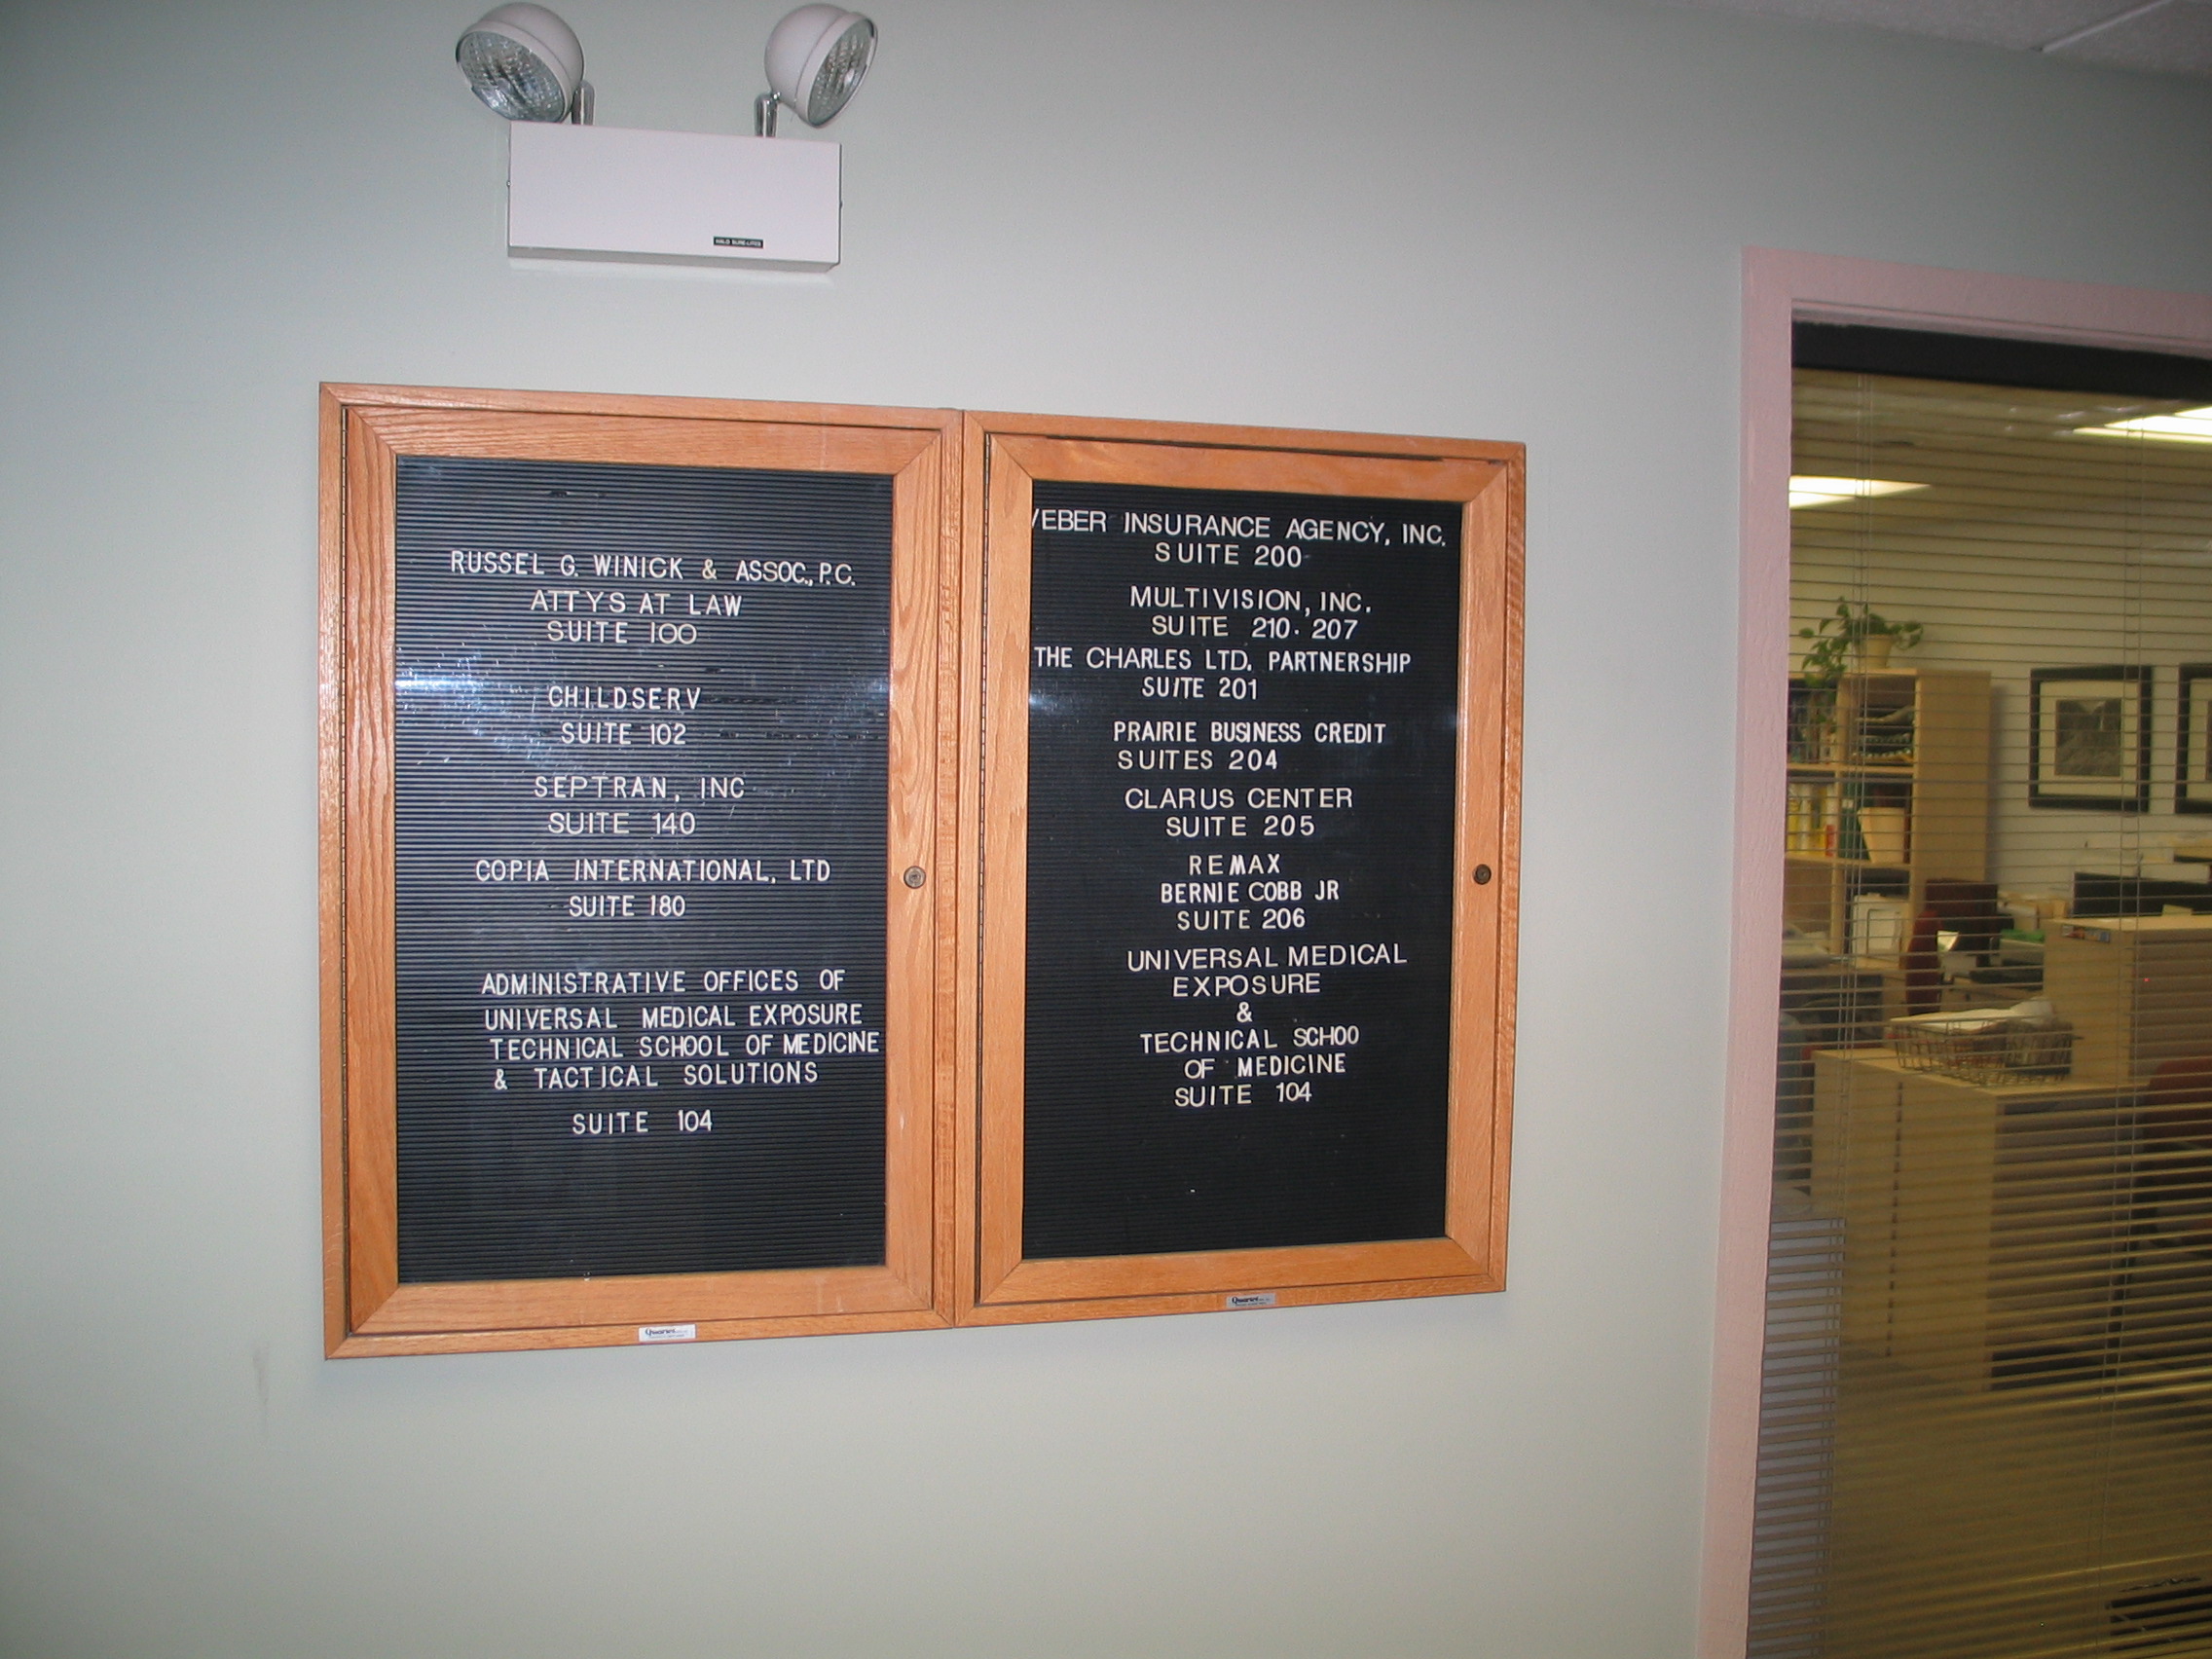 HALO SURE-LITES
RUSSEL G. WINICK & ASSOC., P.C.
ATTYS AT LAW
SUITE 100
CHILDSERV
SUITE 102
SEPTRAN, INC
SUITE 140
COPIA INTERNATIONAL, LTD
SUITE 180
ADMINISTRATIVE OFFICES OF
UNIVERSAL MEDICAL EXPOSURE
TECHNICAL SCHOOL OF MEDICINE
& TACTICAL SOLUTIONS
SUITE 104
Quartet
EBER INSURANCE AGENCY, INC.
SUITE 200
MULTIVISION, INC.
SUITE 210. 207
THE CHARLES LTD. PARTNERSHIP
SUITE 201
PRAIRIE BUSINESS CREDIT
SUITES 204
CLARUS CENTER
SUITE 205
REMAX
BERNIE COBB JR
SUITE 206
UNIVERSAL MEDICAL
EXPOSURE
&
TECHNICAL SCHOO
OF MEDICINE
SUITE 104
Quartet